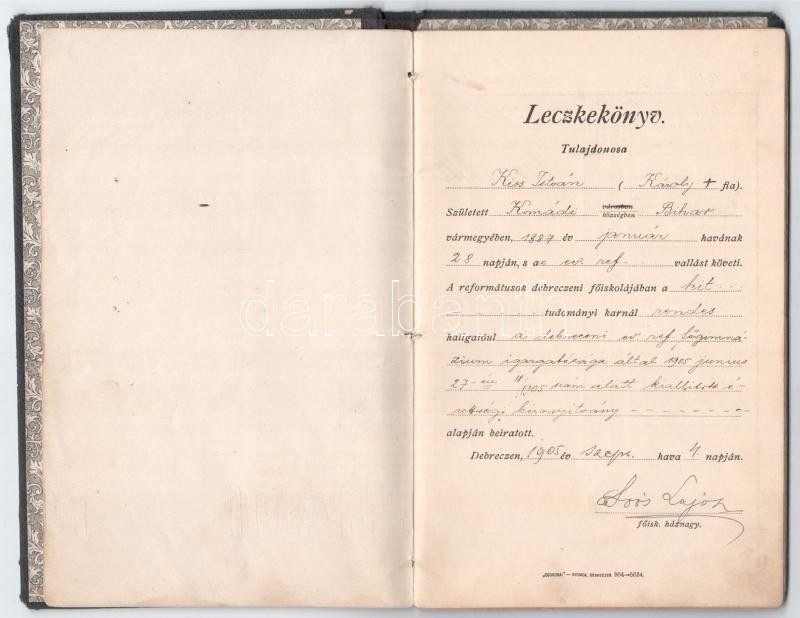 Leczkekönyv.
Tulajdonosa
Kiss István ( Károly + fia).
Született Komádi városban községben Bihar
vármegyében, 1887 év január havának
28 napján, s az ev. ref. vallást követi.
A reformátusok debreczeni főiskolájában a hit
tudományi karnál rendes
hallgatóul a debreczeni ev. ref főgimná-
zium igazgatósága által 1905 junius
27-én 18/1905 szám alatt kiállított é-
rettségi bizonyitvány
alapján beiratott.
Debreczen, 1905 év szept. hava 4. napján.
Soós Lajos
főisk. háznagy.
"CSOKONAI"—NYOMDA, DEBRECZEN. 904—5634.
darabanth